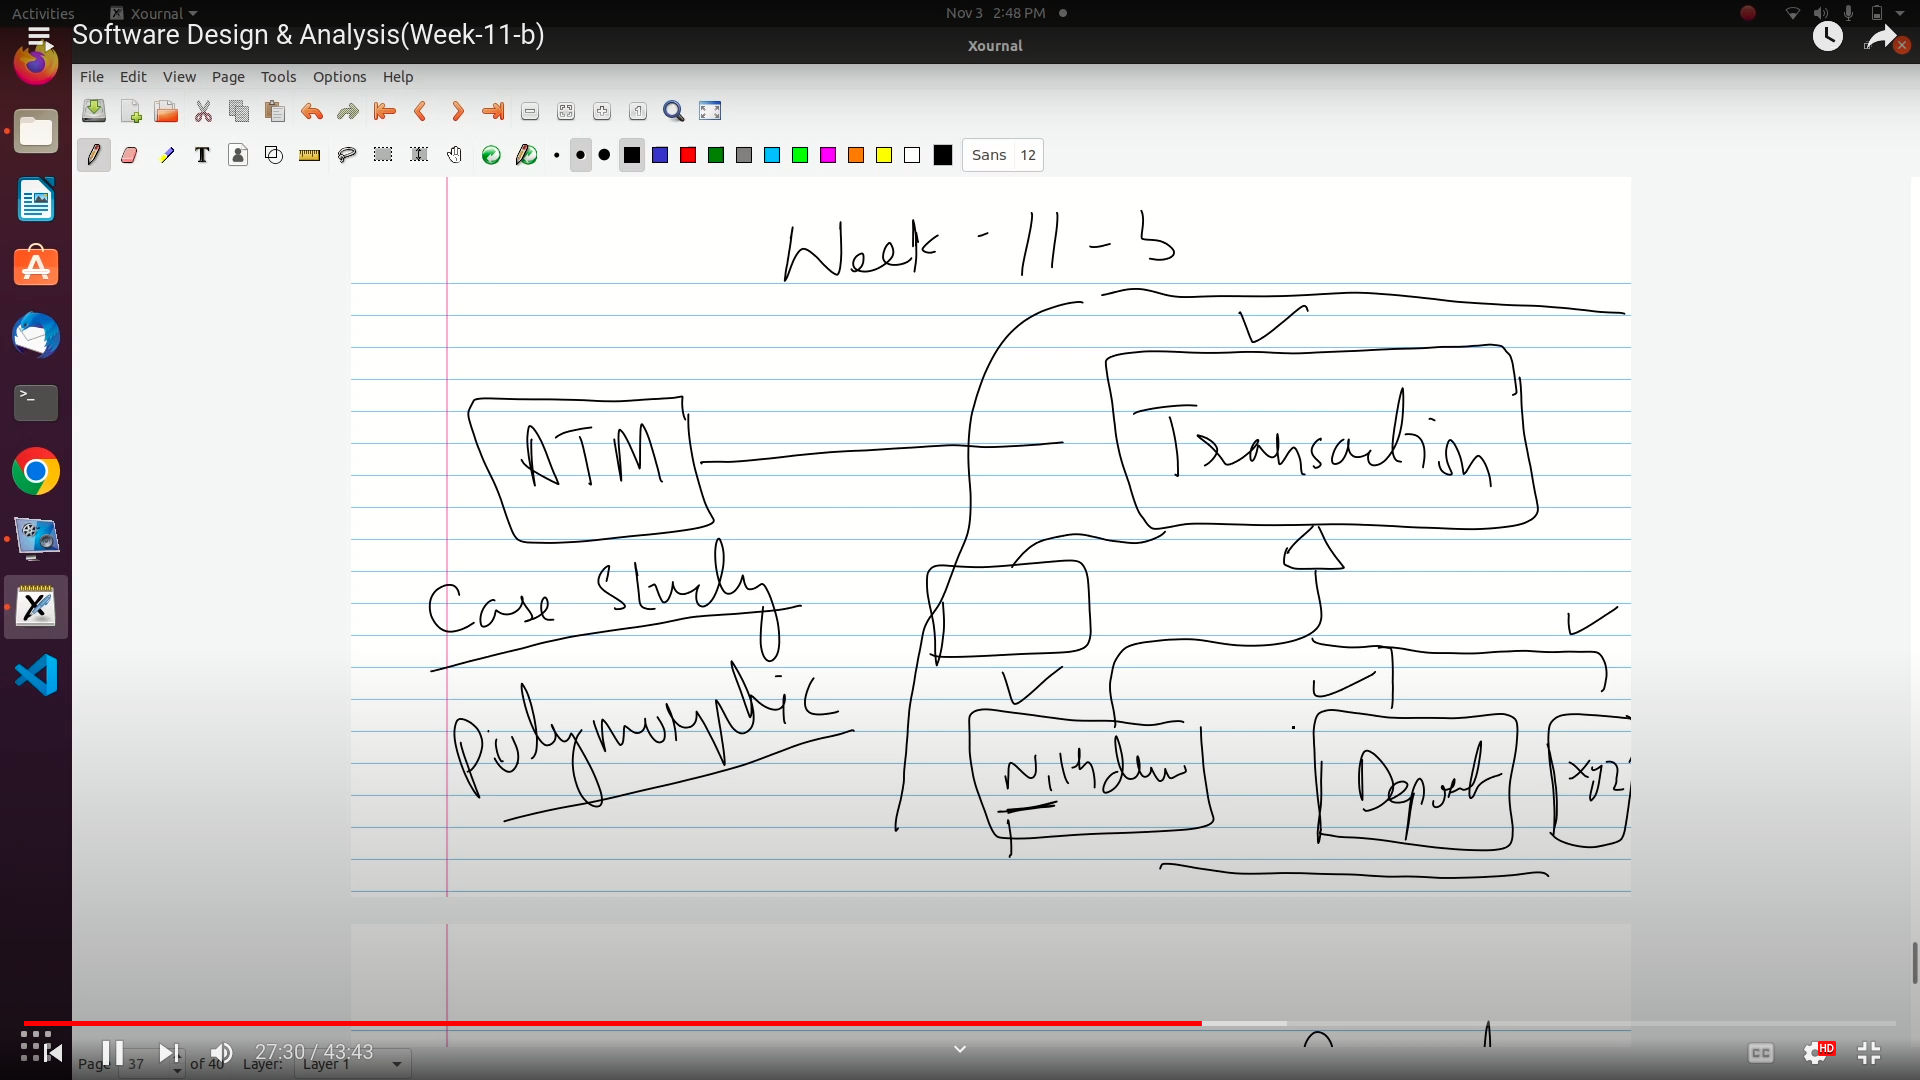 Activities Xournal Nov 3 2:48 PM
Software Design & Analysis(Week-11-b)
Xournal
File Edit View Page Tools Options Help
T Sans 12
Week - 11 - b
ATM
Transaction
Case Study
Polymorphic
Deposit
xyz
27:30 / 43:43
CC HD
Page 37 of 40 Layer: Layer 1